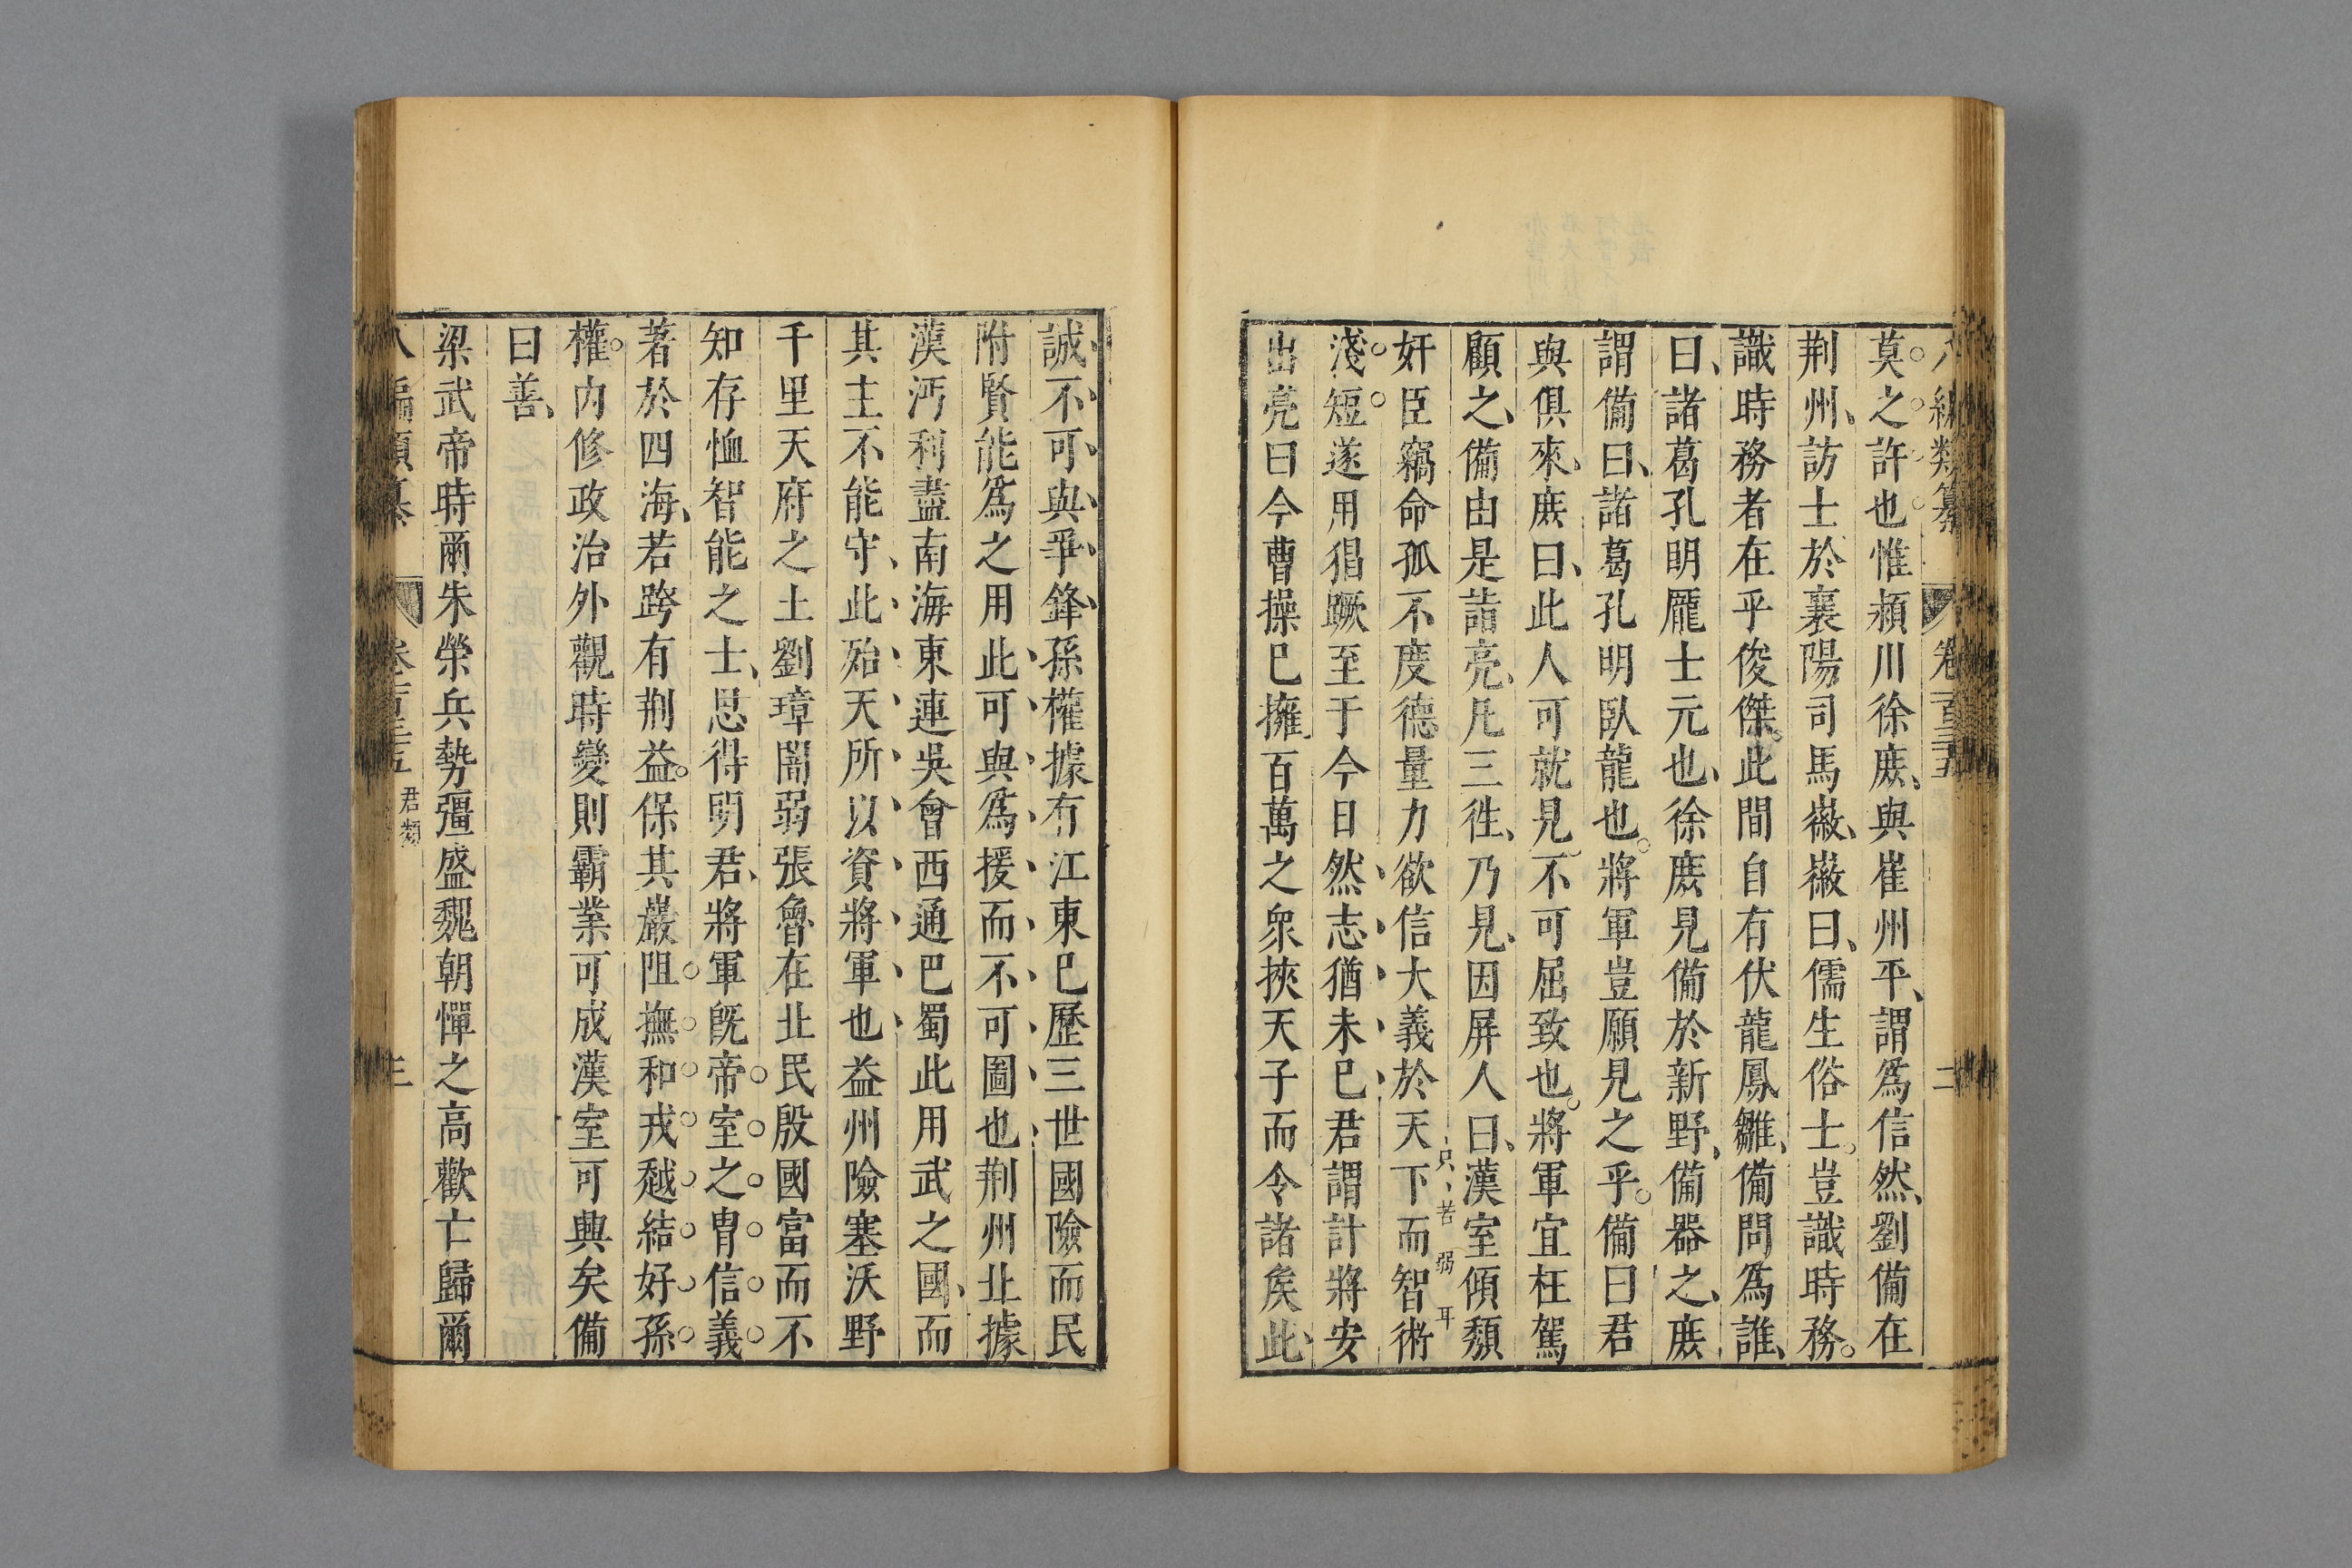 八編類纂 卷一百三十五 二
莫之許也惟潁川徐庶、與崔州平、謂爲信然、劉備在
荆州、訪士於襄陽司馬徽、徽曰、儒生俗士。豈識時務。
識時務者在乎俊傑。此間自有伏龍鳳雛、備問爲誰、
曰、諸葛孔明龐士元也、徐庶見備於新野、備器之、庶
謂備曰、諸葛孔明臥龍也。將軍豈願見之乎。備曰君
與俱來、庶曰、此人可就見、不可屈致也。將軍宜枉駕
顧之、備由是詣亮、凡三徃、乃見、因屏人曰、漢室傾頹
只苦弱耳
奸臣竊命孤不度德量力欲信大義於天下而智術
淺短遂用猖蹶至于今日然志猶未巳君謂計將安
出亮曰今曹操巳擁百萬之衆挾天子而令諸矦此
誠不可與爭鋒孫權據有江東巳歷三世國險而民
附賢能爲之用此可與爲援而不可圖也荆州北據
漢沔利盡南海東連吳會西通巴蜀此用武之國、而
其主不能守、此殆天所以資將軍也益州險塞沃野
千里天府之土劉璋闇弱張魯在北民殷國富而不
知存恤智能之士、思得明君、將軍旣帝室之胄信義
著於四海、若跨有荆益。保其巖阻撫和戎越結好孫
權。內修政治外觀時變則霸業可成漢室可興矣備
曰善、
梁武帝時爾朱榮兵勢彊盛魏朝憚之高歡亡歸爾
八編類纂 卷一百三十五 君類 三